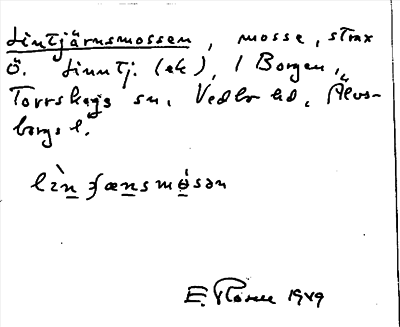 Lintjärnsmossen, mosse, strax
Ö. Linntj. (ek), i Borgen,
Torrskogs sn, Vedbo hd, Älvs-
borgs l.
E. Florén 1949